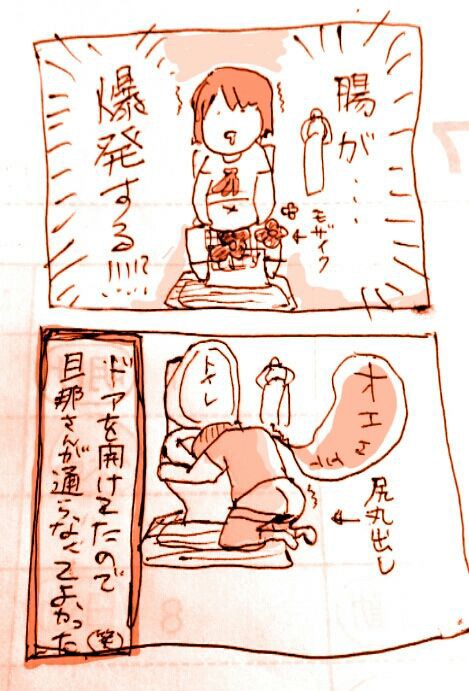 腸が…
爆発する!!!!!?
モザイク
トイレ
尻丸出し
ドアを開けてたので
旦那さんが通らなくてよかった(笑)
7
8